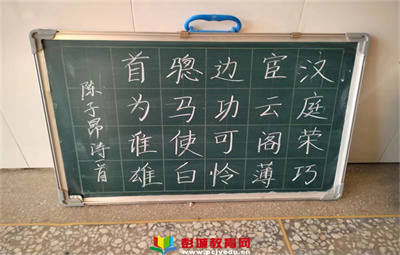 汉庭荣巧
宦云阁薄
边功可怜
骢马使白
首为谁雄
陈子昂诗首
彭城教育网
www.pcjyedu.cn